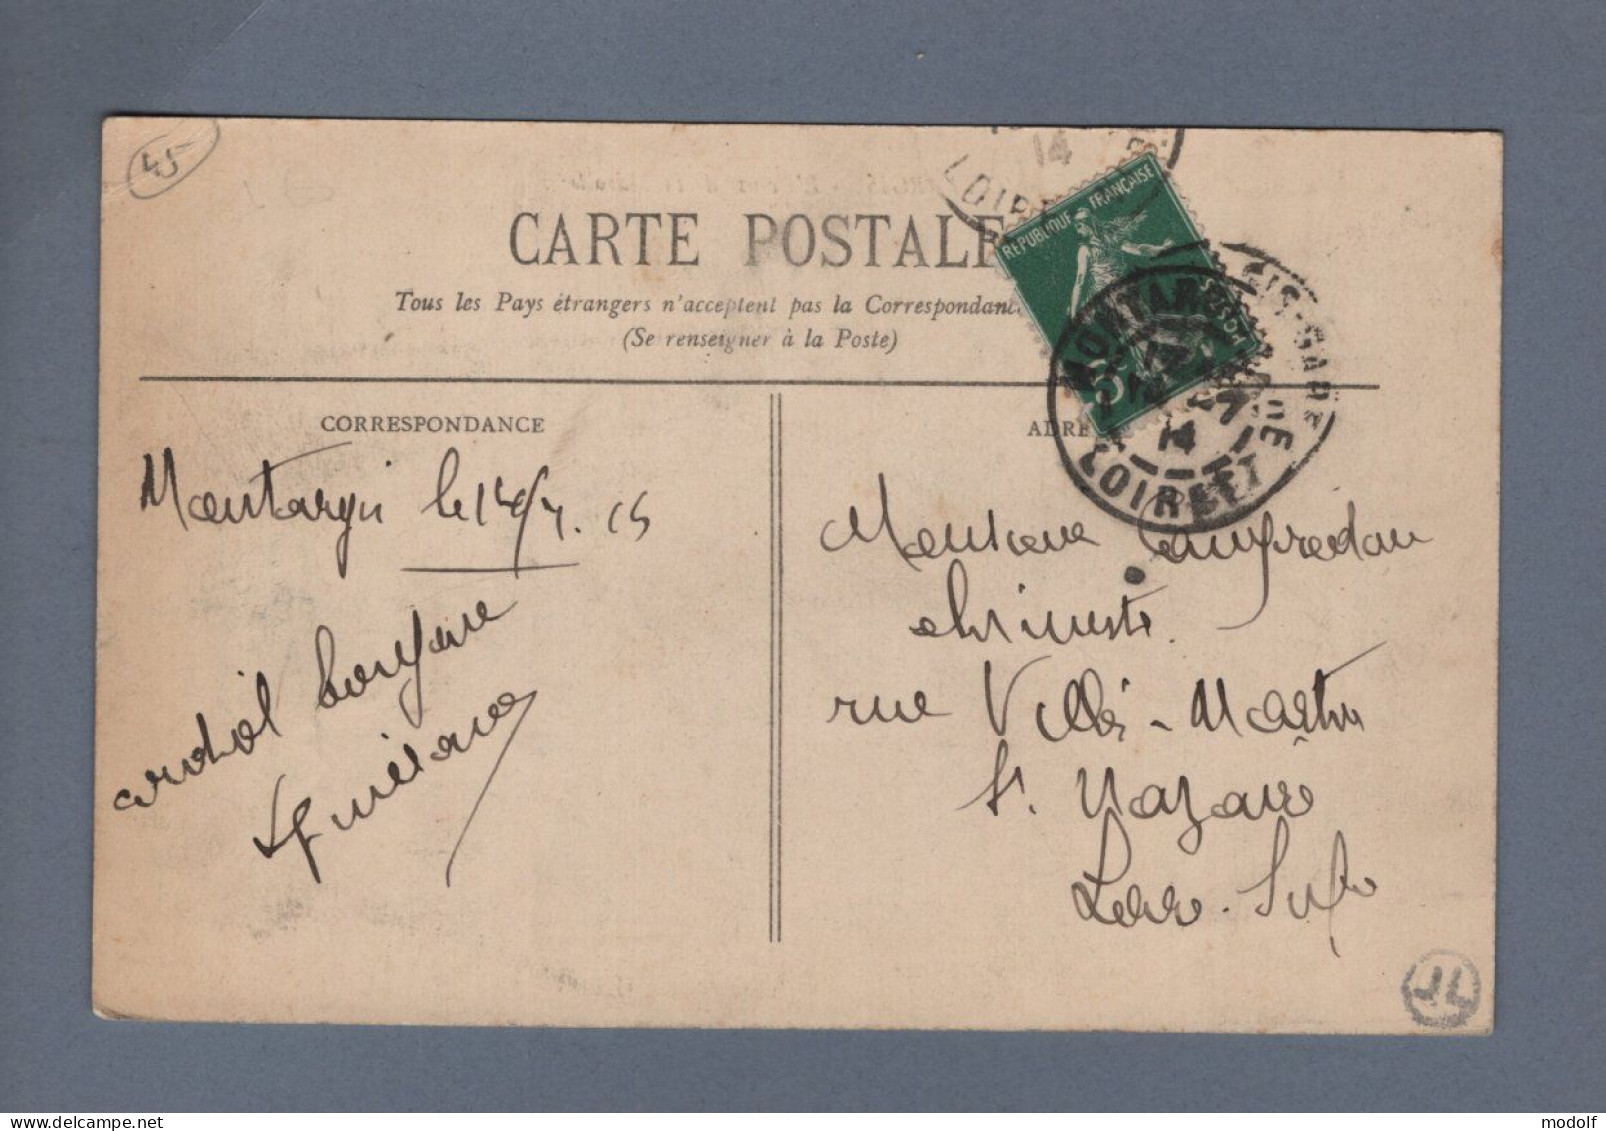 45
CARTE POSTALE
Tous les Pays étrangers n'acceptent pas la Correspondance
(Se renseigner à la Poste)
RÉPUBLIQUE FRANÇAISE
14
LOIRET
MONTARGIS-GARE
14
LOIRET
CORRESPONDANCE
ADRE
Montargis le 14/7.
cordial bonjour
Monsieur
ebéniste
rue Villès-Martin
St. Nazaire
Loire-Infre
JL
delcampe.net
modolf